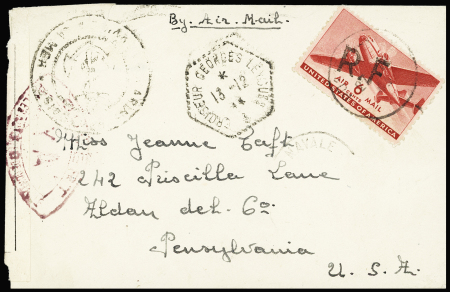 By. Air. Mail.
CROISEUR GEORGES LEYGUES
*
13-12
44
R F
6
AIR MAIL
UNITED STATES OF AMERICA
NAVALE
Miss Jeanne Taft
242 Priscilla Lane
Aldan del. Co.
Pensylvania
U. S. A.